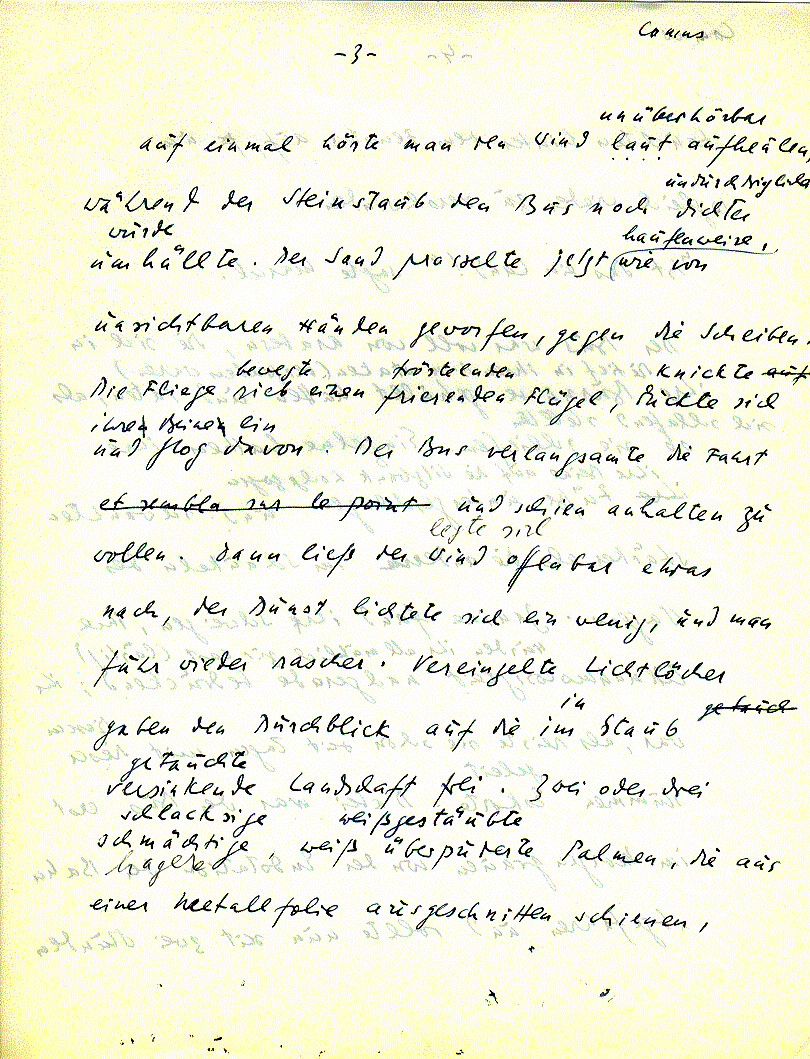 Camus
-3-
unüberhörbar
auf einmal hörte man den Wind laut aufheulen,
undurchdringlicher
während der Steinstaub den Bus noch dichter
wurde haufenweise,
umhüllte. Der Sand prasselte jetzt (wie von
unsichtbaren Händen geworfen, gegen die Scheiben.
bewegte fröstelnden knickte auf
Die Fliege rieb einen frierenden Flügel, duckte sich
ihren Beinen ein
und flog davon. Der Bus verlangsamte die Fahrt
et sembla sur le point und schien anhalten zu
legte sich
wollen. Dann ließ der Wind offenbar etwas
nach, der Dunst lichtete sich ein wenig, und man
fuhr wieder rascher. Vereinzelte Lichtlöcher
in getauch
gaben den Durchblick auf die im Staub
getauchte
versinkende Landschaft frei. Zwei oder drei
schlacksige weißgestäubte
schmächtige, weiß überpuderte Palmen, die aus
hagere
einer Metallfolie ausgeschnitten schienen,